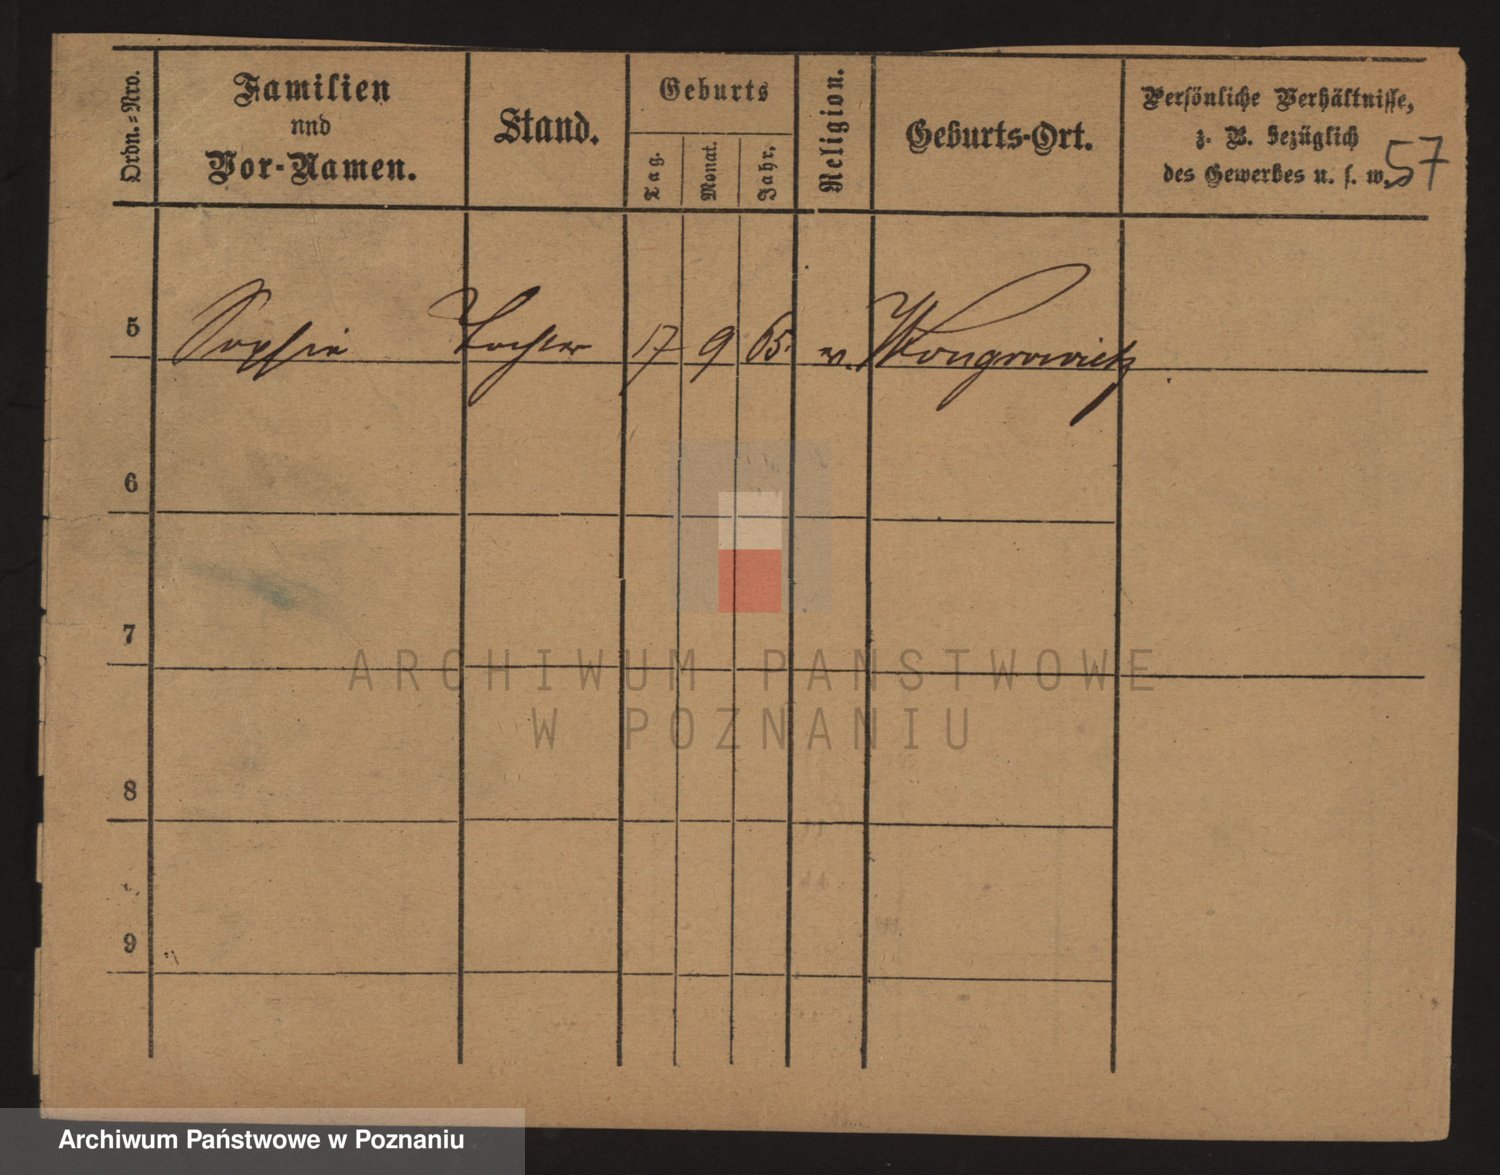 Ordn.-Nro.
Familien
und
Vor-Namen.
Stand.
Geburts
Tag.
Monat.
Jahr.
Religion.
Geburts-Ort.
Persönliche Verhältnisse,
z. B. bezüglich
des Gewerbes u. s. w.
57
5 Sophie Tochter 17 9 65. Wongrowietz
6
7
8
9
ARCHIWUM PAŃSTWOWE
W POZNANIU
Archiwum Państwowe w Poznaniu